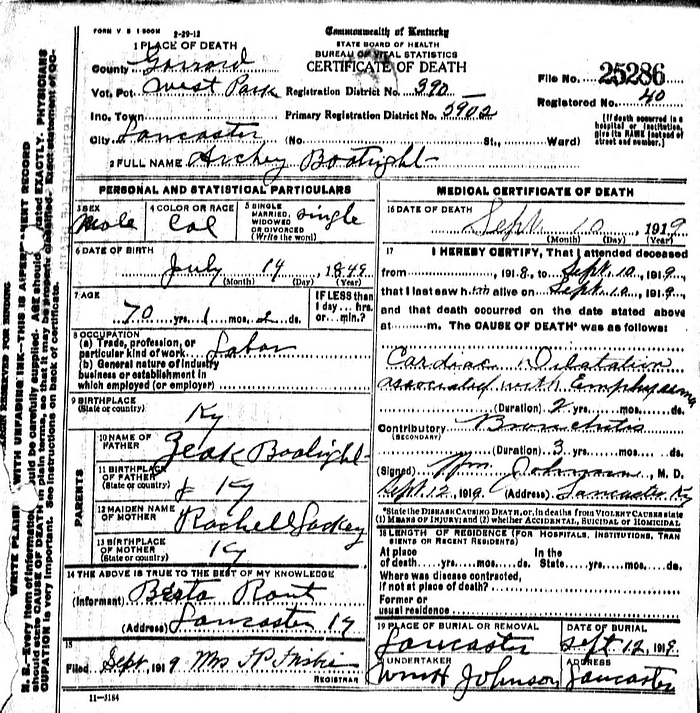 FORM V S 1 500M 2-29-12
Commonwealth of Kentucky
STATE BOARD OF HEALTH
BUREAU OF VITAL STATISTICS
CERTIFICATE OF DEATH
1 PLACE OF DEATH
County Garrard
Vot. Pct. West Park Registration District No. 390
File No. 25286
Inc. Town Primary Registration District No. 5902
Registered No. 40
City Lancaster (No. St., Ward)
(If death occurred in a hospital or institution, give its NAME instead of street and number.)
2 FULL NAME Archey Boatright
PERSONAL AND STATISTICAL PARTICULARS
3 SEX Male
4 COLOR OR RACE Col
5 SINGLE MARRIED, WIDOWED OR DIVORCED (Write the word) Single
6 DATE OF BIRTH July 14, 1849
(Month) (Day) (Year)
7 AGE 70 yrs. 1 mos. 2 ds.
IF LESS than 1 day... hrs. or... min.?
8 OCCUPATION
(a) Trade, profession, or particular kind of work Labor
(b) General nature of industry business or establishment in which employed (or employer)
9 BIRTHPLACE (State or country) Ky
PARENTS
10 NAME OF FATHER Zeak Boatright
11 BIRTHPLACE OF FATHER (State or country) Ky
12 MAIDEN NAME OF MOTHER Rachell Lackey
13 BIRTHPLACE OF MOTHER (State or country) Ky
14 THE ABOVE IS TRUE TO THE BEST OF MY KNOWLEDGE
(Informant) Rout
(Address) Lancaster Ky
15
Filed Sept, 1919 Mrs
REGISTRAR
11-3184
MEDICAL CERTIFICATE OF DEATH
16 DATE OF DEATH Sept. 10, 1919
(Month) (Day) (Year)
17 I HEREBY CERTIFY, That I attended deceased
from 1918, to Sept. 10, 1919,
that I last saw him alive on Sept. 10, 1919,
and that death occurred on the date stated above
at m. The CAUSE OF DEATH* was as follows:
Cardiac Dilatation
associated with Emphysema
(Duration) 2 yrs. mos. ds.
Contributory Bronchitis
(SECONDARY)
(Duration) 3 yrs. mos. ds.
(Signed) Wm. Johnson, M. D.
Sept. 12, 1919 (Address) Lancaster Ky
*State the DISEASE CAUSING DEATH, or, in deaths from VIOLENT CAUSES state (1) MEANS OF INJURY; and (2) whether ACCIDENTAL, SUICIDAL OR HOMICIDAL
18 LENGTH OF RESIDENCE (FOR HOSPITALS, INSTITUTIONS, TRANSIENTS OR RECENT RESIDENTS)
At place of death... yrs... mos... ds. In the State... yrs... mos... ds.
Where was disease contracted, if not at place of death?
Former or usual residence
19 PLACE OF BURIAL OR REMOVAL Lancaster
DATE OF BURIAL Sept 12, 1919
20 UNDERTAKER Wm H Johnson
ADDRESS Lancaster